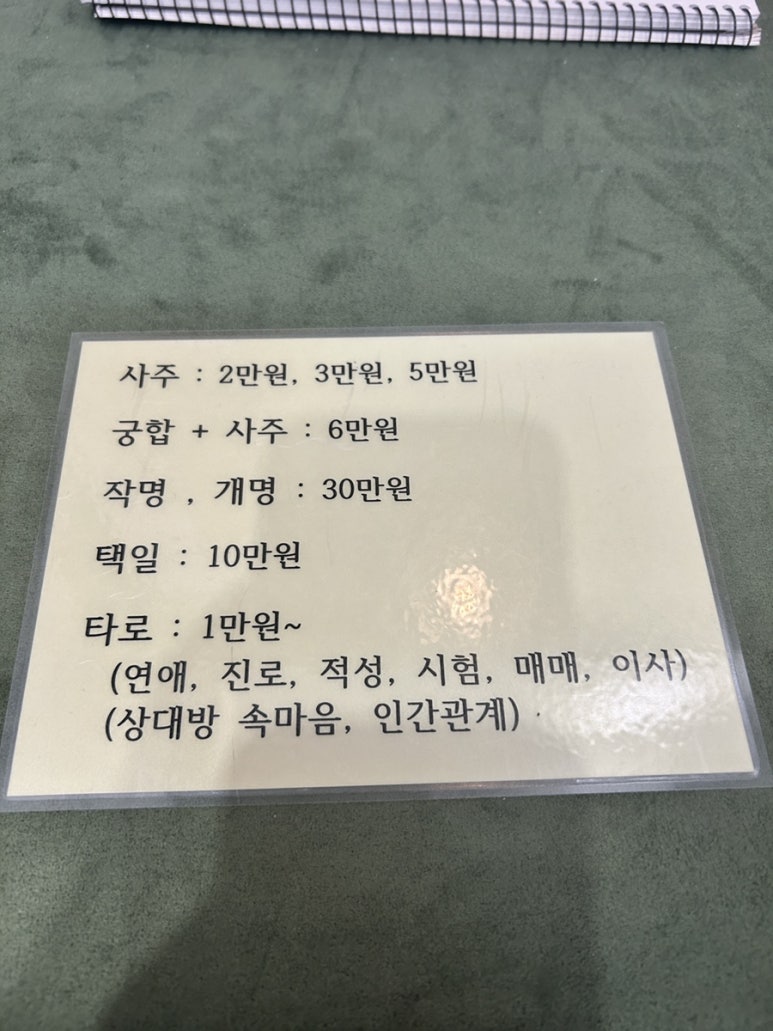 사주 : 2만원, 3만원, 5만원
궁합 + 사주 : 6만원
작명 , 개명 : 30만원
택일 : 10만원
타로 : 1만원~
(연애, 진로, 적성, 시험, 매매, 이사)
(상대방 속마음, 인간관계)